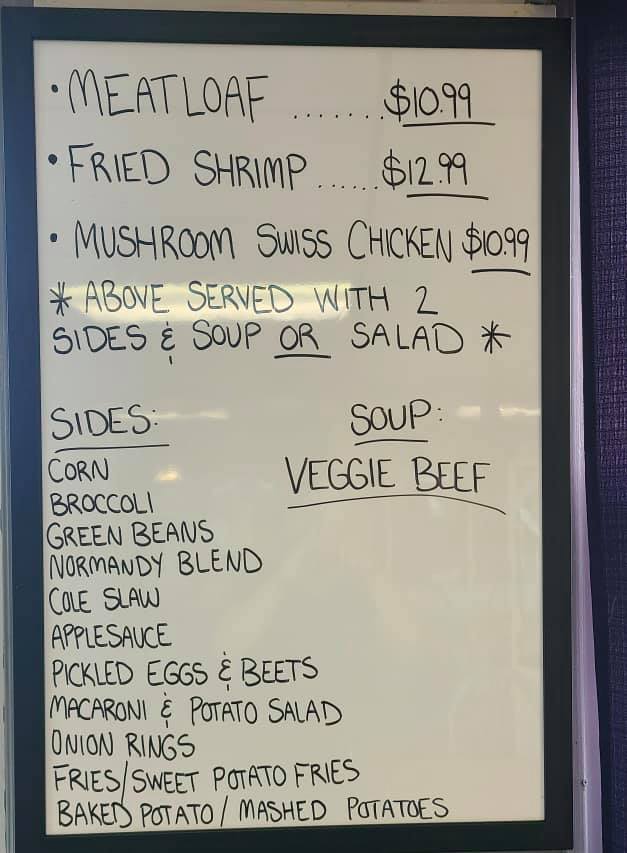 • MEATLOAF ....... $10.99
• FRIED SHRIMP ...... $12.99
• MUSHROOM SWISS CHICKEN $10.99
* ABOVE SERVED WITH 2
SIDES & SOUP OR SALAD *
SIDES:
CORN
BROCCOLI
GREEN BEANS
NORMANDY BLEND
COLE SLAW
APPLESAUCE
PICKLED EGGS & BEETS
MACARONI & POTATO SALAD
ONION RINGS
FRIES/SWEET POTATO FRIES
BAKED POTATO/MASHED POTATOES
SOUP:
VEGGIE BEEF